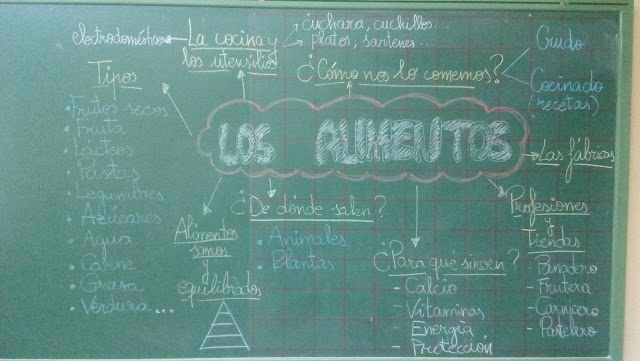 electrodomésticos
La cocina y
los utensilios
cuchara, cuchillos...
platos, sartenes...
¿Cómo nos lo comemos?
Crudo
Cocinado
(recetas)
Tipos
Frutos secos
Fruta
Lácteos
Pastas
Legumbres
Azúcares
Agua
Carne
Grasa
Verdura...
LOS ALIMENTOS
Las fábricas
Alimentos
sanos
y
equilibrados
¿De dónde salen?
Animales
Plantas
¿Para qué sirven?
- Calcio
- Vitaminas
- Energía
- Protección
Profesiones
y
Tiendas
- Panadero
- Frutera
- Carnicero
- Pastelero